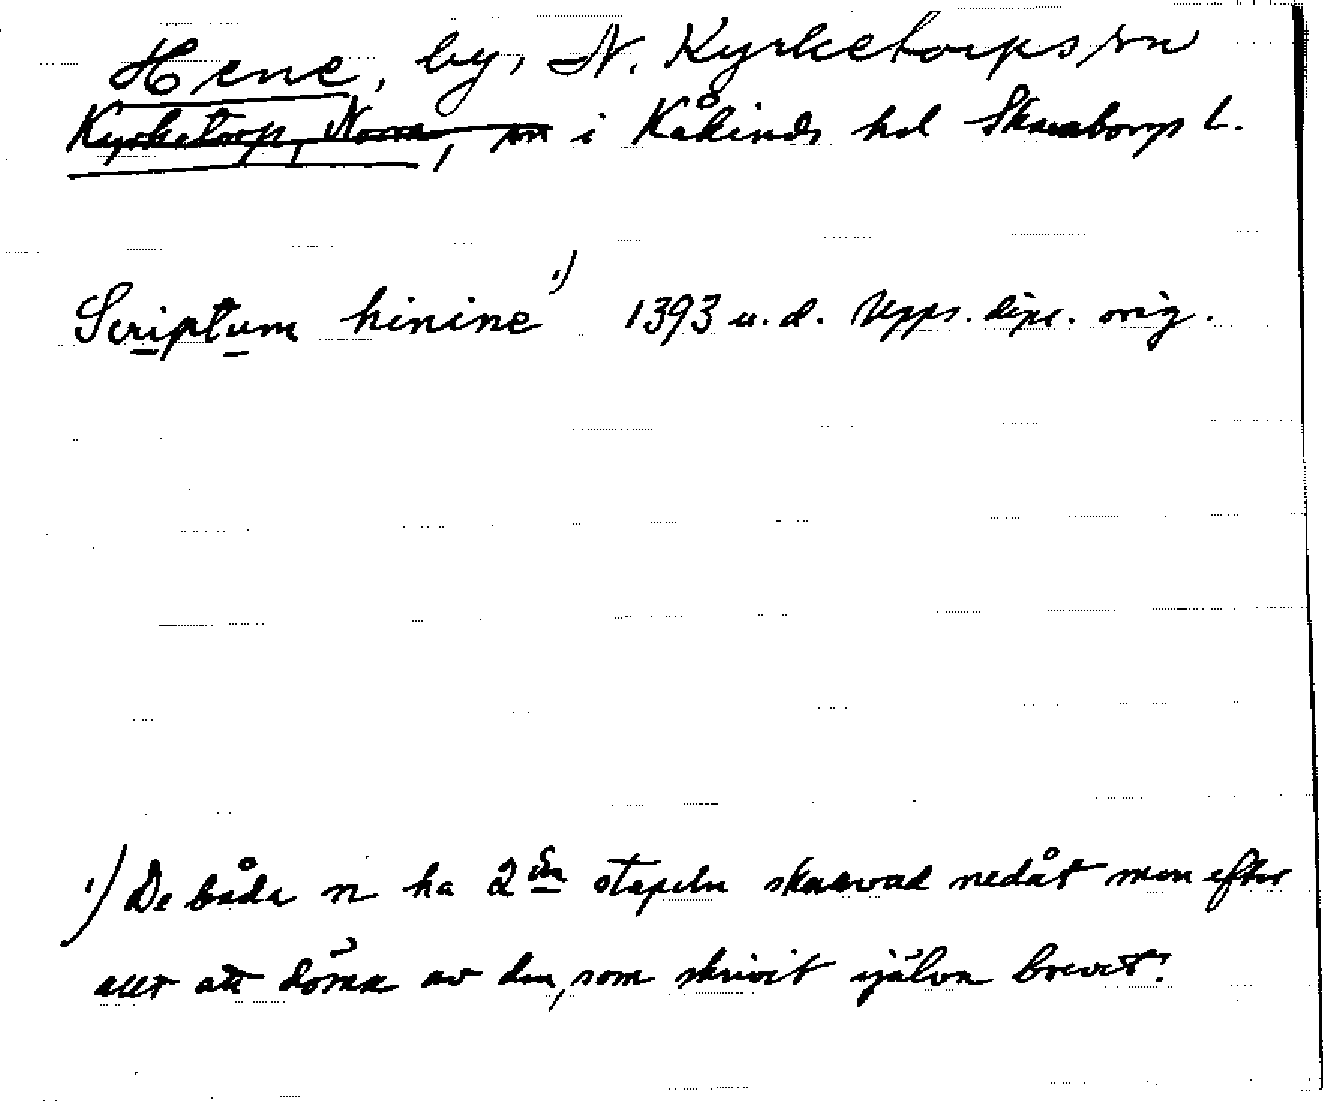 Hene, by, N. Kyrketorps sn
Kyrketorp, Norra, sn i Kåkinds hd Skaraborgs l.
Scriptum hinine ¹) 1393 u. d. Upps. dipl. orig.
¹) De båda n ha 2 dra stapeln skarvad nedåt men efter
allt att döma av den, som skrivit själva brevet!